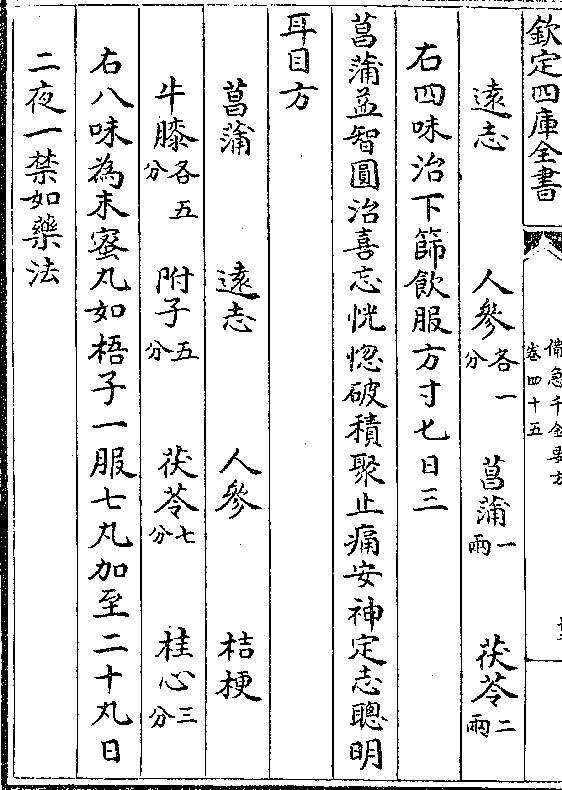 欽定四庫全書
備急千金要方
卷四十五
遠志 人參各一分 菖蒲一兩 茯苓二兩
右四味治下篩飲服方寸七日三
菖蒲益智圓治喜忘恍惚破積聚止痛安神定志聰明
耳目方
菖蒲 遠志 人參 桔梗
牛膝各五分 附子五分 茯苓七分 桂心三分
右八味為末蜜丸如梧子一服七丸加至二十丸日
二夜一禁如藥法